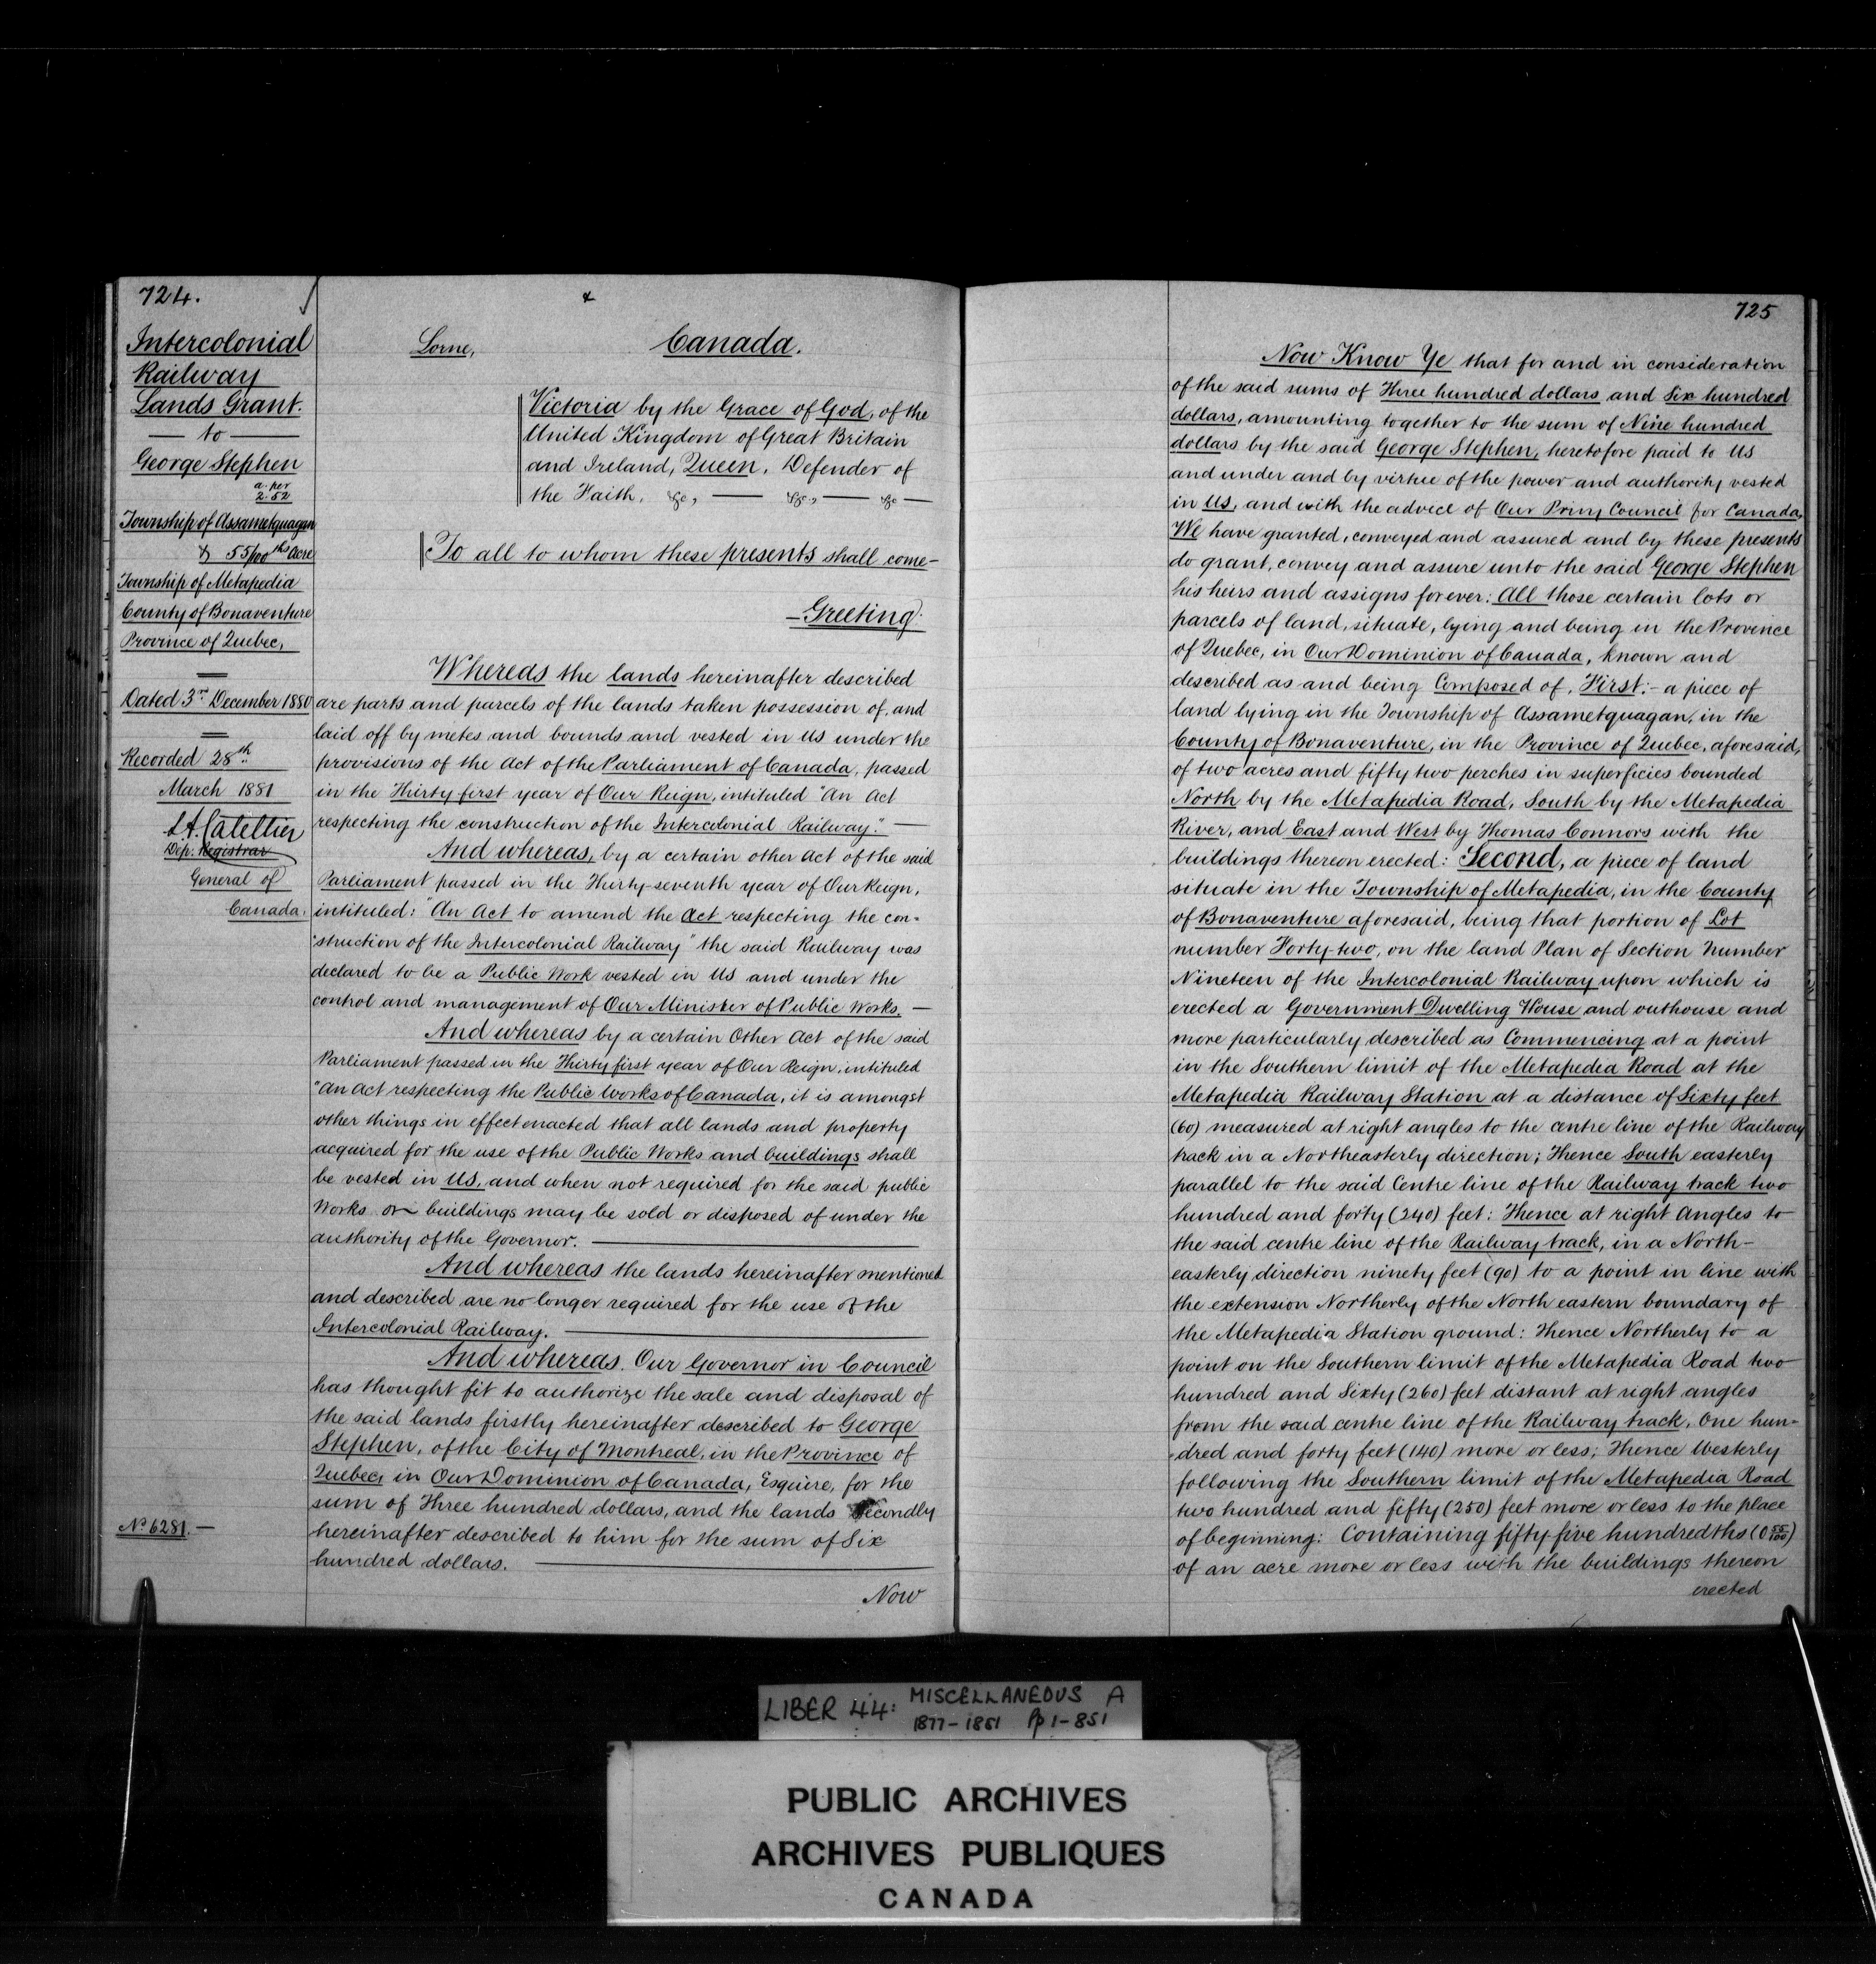 724.
Intercolonial
Railway
Lands Grant.
— to —
George Stephen
a. per
2.52
Township of Assametquagan
& 55/100ths Acre
Township of Metapedia
County of Bonaventure
Province of Quebec,
Dated 3rd December 1880
Recorded 28th
March 1881
L. A. Catellier
Dep. Registrar
General of
Canada.
No 6281. —
Lorne,
Canada.
Victoria by the Grace of God, of the
United Kingdom of Great Britain
and Ireland, Queen, Defender of
the Faith, &c, — &c., — &c —
To all to whom these presents shall come—
— Greeting:
Whereas the lands hereinafter described
are parts and parcels of the lands taken possession of, and
laid off by metes and bounds and vested in us under the
provisions of the Act of the Parliament of Canada, passed
in the Thirty first year of Our Reign, intituled "An Act
respecting the construction of the Intercolonial Railway." —
And whereas, by a certain other Act of the said
Parliament passed in the Thirty-seventh year of Our Reign,
intituled: "An Act to amend the Act respecting the con-
"struction of the Intercolonial Railway" the said Railway was
declared to be a Public Work vested in us and under the
control and management of Our Minister of Public Works. —
And whereas by a certain Other Act of the said
Parliament passed in the Thirty first year of Our Reign, intituled
"An Act respecting the Public Works of Canada, it is amongst
other things in effect enacted that all lands and property
acquired for the use of the Public Works and buildings shall
be vested in Us, and when not required for the said public
Works or buildings may be sold or disposed of under the
authority of the Governor. —
And whereas the lands hereinafter mentioned
and described are no longer required for the use of the
Intercolonial Railway. —
And whereas. Our Governor in Council
has thought fit to authorize the sale and disposal of
the said lands firstly hereinafter described to George
Stephen, of the City of Montreal, in the Province of
Quebec, in Our Dominion of Canada, Esquire, for the
sum of Three hundred dollars, and the lands secondly
hereinafter described to him for the sum of Six
hundred dollars. —
Now
725
Now Know Ye that for and in consideration
of the said sums of Three hundred dollars and Six hundred
dollars, amounting together to the sum of Nine hundred
dollars by the said George Stephen, heretofore paid to us
and under and by virtue of the power and authority vested
in Us, and with the advice of Our Privy Council for Canada,
We have granted, conveyed and assured and by these presents
do grant, convey and assure unto the said George Stephen
his heirs and assigns forever: All those certain lots or
parcels of land, situate, lying and being in the Province
of Quebec, in Our Dominion of Canada, known and
described as and being Composed of, First:- a piece of
land lying in the Township of Assametquagan, in the
County of Bonaventure, in the Province of Quebec, aforesaid,
of two acres and fifty two perches in superficies bounded
North by the Metapedia Road, South by the Metapedia
River, and East and West by Thomas Connors with the
buildings thereon erected: Second, a piece of land
situate in the Township of Metapedia, in the County
of Bonaventure aforesaid, being that portion of Lot
number Forty-two, on the land Plan of Section Number
Nineteen of the Intercolonial Railway upon which is
erected a Government Dwelling House and outhouse and
more particularly described as Commencing at a point
in the Southern limit of the Metapedia Road at the
Metapedia Railway Station at a distance of Sixty feet
(60) measured at right angles to the centre line of the Railway
track in a Northeasterly direction; Thence South easterly
parallel to the said Centre line of the Railway track two
hundred and forty (240) feet: Thence at right angles to
the said centre line of the Railway track, in a North-
easterly direction ninety feet (90) to a point in line with
the extension Northerly of the North eastern boundary of
the Metapedia Station ground: Thence Northerly to a
point on the Southern limit of the Metapedia Road two
hundred and Sixty (260) feet distant at right angles
from the said centre line of the Railway track, One hun-
-dred and forty feet (140) more or less; Thence Westerly
following the Southern limit of the Metapedia Road
two hundred and fifty (250) feet more or less to the place
of beginning: Containing fifty five hundredths (0 55/100)
of an acre more or less with the buildings thereon
erected
LIBER 44: MISCELLANEOUS A
1877-1881 Pp 1-851
PUBLIC ARCHIVES
ARCHIVES PUBLIQUES
CANADA